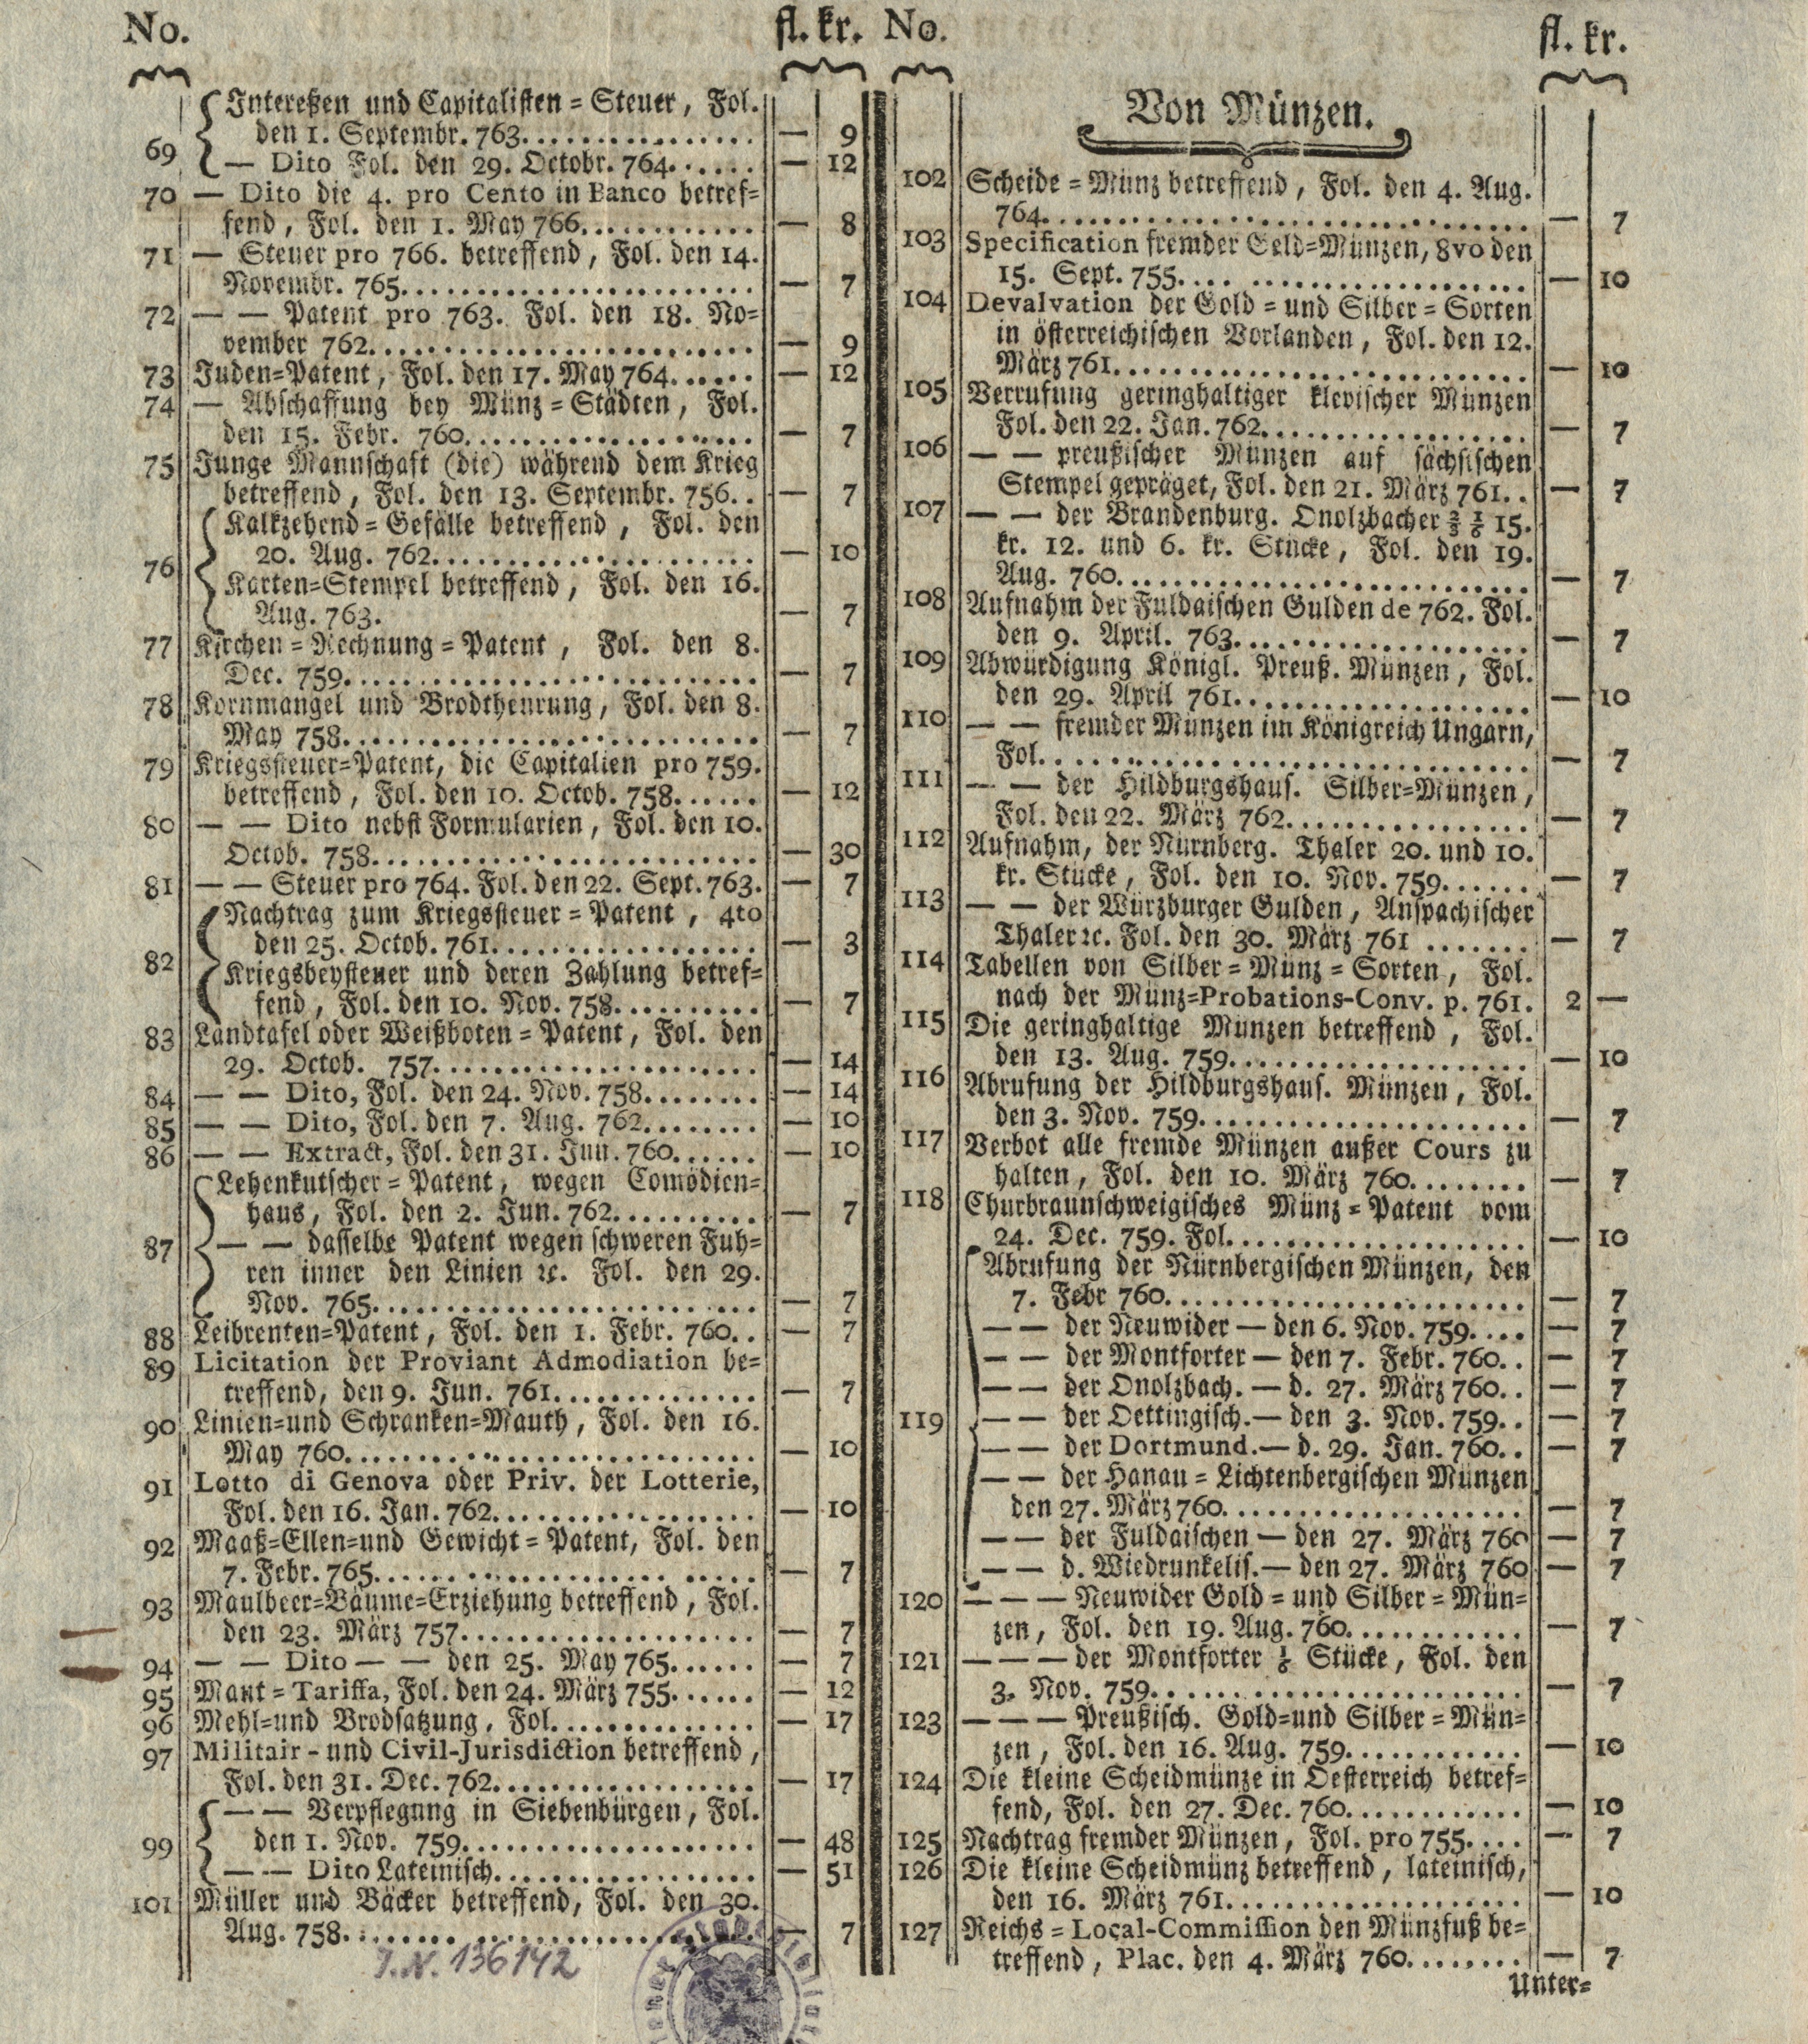 No. fl. kr.
Intereßen und Capitalisten = Steuer, Fol.
69 den 1. Septembr. 763. — 9
— Dito Fol. den 29. Octobr. 764. — 12
70 — Dito die 4. pro Cento in Banco betref=
fend, Fol. den 1. May 766. — 8
71 — Steuer pro 766. betreffend, Fol. den 14.
Novembr. 765. — 7
72 — — Patent pro 763. Fol. den 18. No=
vember 762. — 9
73 Juden=Patent, Fol. den 17. May 764. — 12
74 — Abschaffung bey Münz = Städten, Fol.
den 15. Febr. 760. — 7
75 Junge Mannschaft (die) während dem Krieg
betreffend, Fol. den 13. Septembr. 756. . — 7
Kalkzehend = Gefälle betreffend, Fol. den
20. Aug. 762. — 10
76 Karten=Stempel betreffend, Fol. den 16.
Aug. 763. — 7
77 Kirchen = Rechnung = Patent, Fol. den 8.
Dec. 759. — 7
78 Kornmangel und Brodtheurung, Fol. den 8.
May 758. — 7
79 Kriegssteuer=Patent, die Capitalien pro 759.
betreffend, Fol. den 10. Octob. 758. — 12
80 — — Dito nebst Formularien, Fol. den 10.
Octob. 758. — 30
81 — — Steuer pro 764. Fol. den 22. Sept. 763. — 7
Nachtrag zum Kriegssteuer = Patent, 4to
den 25. Octob. 761. — 3
82 Kriegsbeysteuer und deren Zahlung betref=
fend, Fol. den 10. Nov. 758. — 7
83 Landtafel oder Weißboten = Patent, Fol. den
29. Octob. 757. — 14
84 — — Dito, Fol. den 24. Nov. 758. — 14
85 — — Dito, Fol. den 7. Aug. 762. — 10
86 — — Extract, Fol. den 31. Jun. 760. — 10
Lehenkutscher = Patent, wegen Comödien=
haus, Fol. den 2. Jun. 762. — 7
87 — — dasselbe Patent wegen schweren Fuh=
ren inner den Linien ꝛc. Fol. den 29.
Nov. 765. — 7
88 Leibrenten=Patent, Fol. den 1. Febr. 760. . — 7
89 Licitation der Proviant Admodiation be=
treffend, den 9. Jun. 761. — 7
90 Linien=und Schranken=Mauth, Fol. den 16.
May 760. — 10
91 Lotto di Genova oder Priv. der Lotterie,
Fol. den 16. Jan. 762. — 10
92 Maaß=Ellen=und Gewicht = Patent, Fol. den
7. Febr. 765. — 7
93 Maulbeer=Bäume=Erziehung betreffend, Fol.
den 23. März 757. — 7
94 — — Dito — — den 25. May 765. — 7
95 Maut = Tariffa, Fol. den 24. März 755. — 12
96 Mehl=und Brodsatzung, Fol. — 17
97 Militair - und Civil-Jurisdiction betreffend,
Fol. den 31. Dec. 762. — 17
— — Verpflegung in Siebenbürgen, Fol.
99 den 1. Nov. 759. — 48
— — Dito Lateinisch. — 51
101 Müller und Bäcker betreffend, Fol. den 30.
Aug. 758. — 7
J.N. 136142
No. fl. kr.
Von Münzen.
102 Scheide = Münz betreffend, Fol. den 4. Aug.
764. — 7
103 Specification fremder Geld=Münzen, 8vo den
15. Sept. 755. — 10
104 Devalvation der Gold = und Silber = Sorten
in österreichischen Vorlanden, Fol. den 12.
März 761. — 10
105 Verrufung geringhaltiger klevischer Münzen
Fol. den 22. Jan. 762. — 7
106 — — preußischer Münzen auf sächsischen
Stempel gepräget, Fol. den 21. März 761. . — 7
107 — — der Brandenburg. Onolzbacher ⅔ ⅙ 15.
kr. 12. und 6. kr. Stücke, Fol. den 19.
Aug. 760. — 7
108 Aufnahm der Fuldaischen Gulden de 762. Fol.
den 9. April. 763. — 7
109 Abwürdigung Königl. Preuß. Münzen, Fol.
den 29. April 761. — 10
110 — — fremder Münzen im Königreich Ungarn,
Fol. — 7
111 — — der Hildburgshaus. Silber=Münzen,
Fol. den 22. März 762. — 7
112 Aufnahm, der Nürnberg. Thaler 20. und 10.
kr. Stücke, Fol. den 10. Nov. 759. — 7
113 — — der Würzburger Gulden, Anspachischer
Thaler ꝛc. Fol. den 30. März 761 — 7
114 Tabellen von Silber = Münz = Sorten, Fol.
nach der Münz=Probations-Conv. p. 761. 2 —
115 Die geringhaltige Münzen betreffend, Fol.
den 13. Aug. 759. — 10
116 Abrufung der Hildburgshaus. Münzen, Fol.
den 3. Nov. 759. — 7
117 Verbot alle fremde Münzen außer Cours zu
halten, Fol. den 10. März 760. — 7
118 Churbraunschweigisches Münz = Patent vom
24. Dec. 759. Fol. — 10
Abrufung der Nürnbergischen Münzen, den
7. Febr 760. — 7
— — der Neuwider — den 6. Nov. 759. — 7
— — der Montforter — den 7. Febr. 760. . — 7
— — der Onolzbach. — d. 27. März 760. . — 7
119 — — der Oettingisch. — den 3. Nov. 759. . — 7
— — der Dortmund. — d. 29. Jan. 760. . — 7
— — der Hanau = Lichtenbergischen Münzen
den 27. März 760. — 7
— — der Fuldaischen — den 27. März 760 — 7
— — d. Wiedrunkelis. — den 27. März 760 — 7
120 — — — Neuwider Gold = und Silber = Mün=
zen, Fol. den 19. Aug. 760. — 7
121 — — — der Montforter ⅙ Stücke, Fol. den
3. Nov. 759. — 7
123 — — — Preußisch. Gold=und Silber = Mün=
zen, Fol. den 16. Aug. 759. — 10
124 Die kleine Scheidmünze in Oesterreich betref=
fend, Fol. den 27. Dec. 760. — 10
125 Nachtrag fremder Münzen, Fol. pro 755. — 7
126 Die kleine Scheidmünz betreffend, lateinisch,
den 16. März 761. — 10
127 Reichs = Local-Commission den Münzfuß be=
treffend, Plac. den 4. März 760. — 7
Unter=